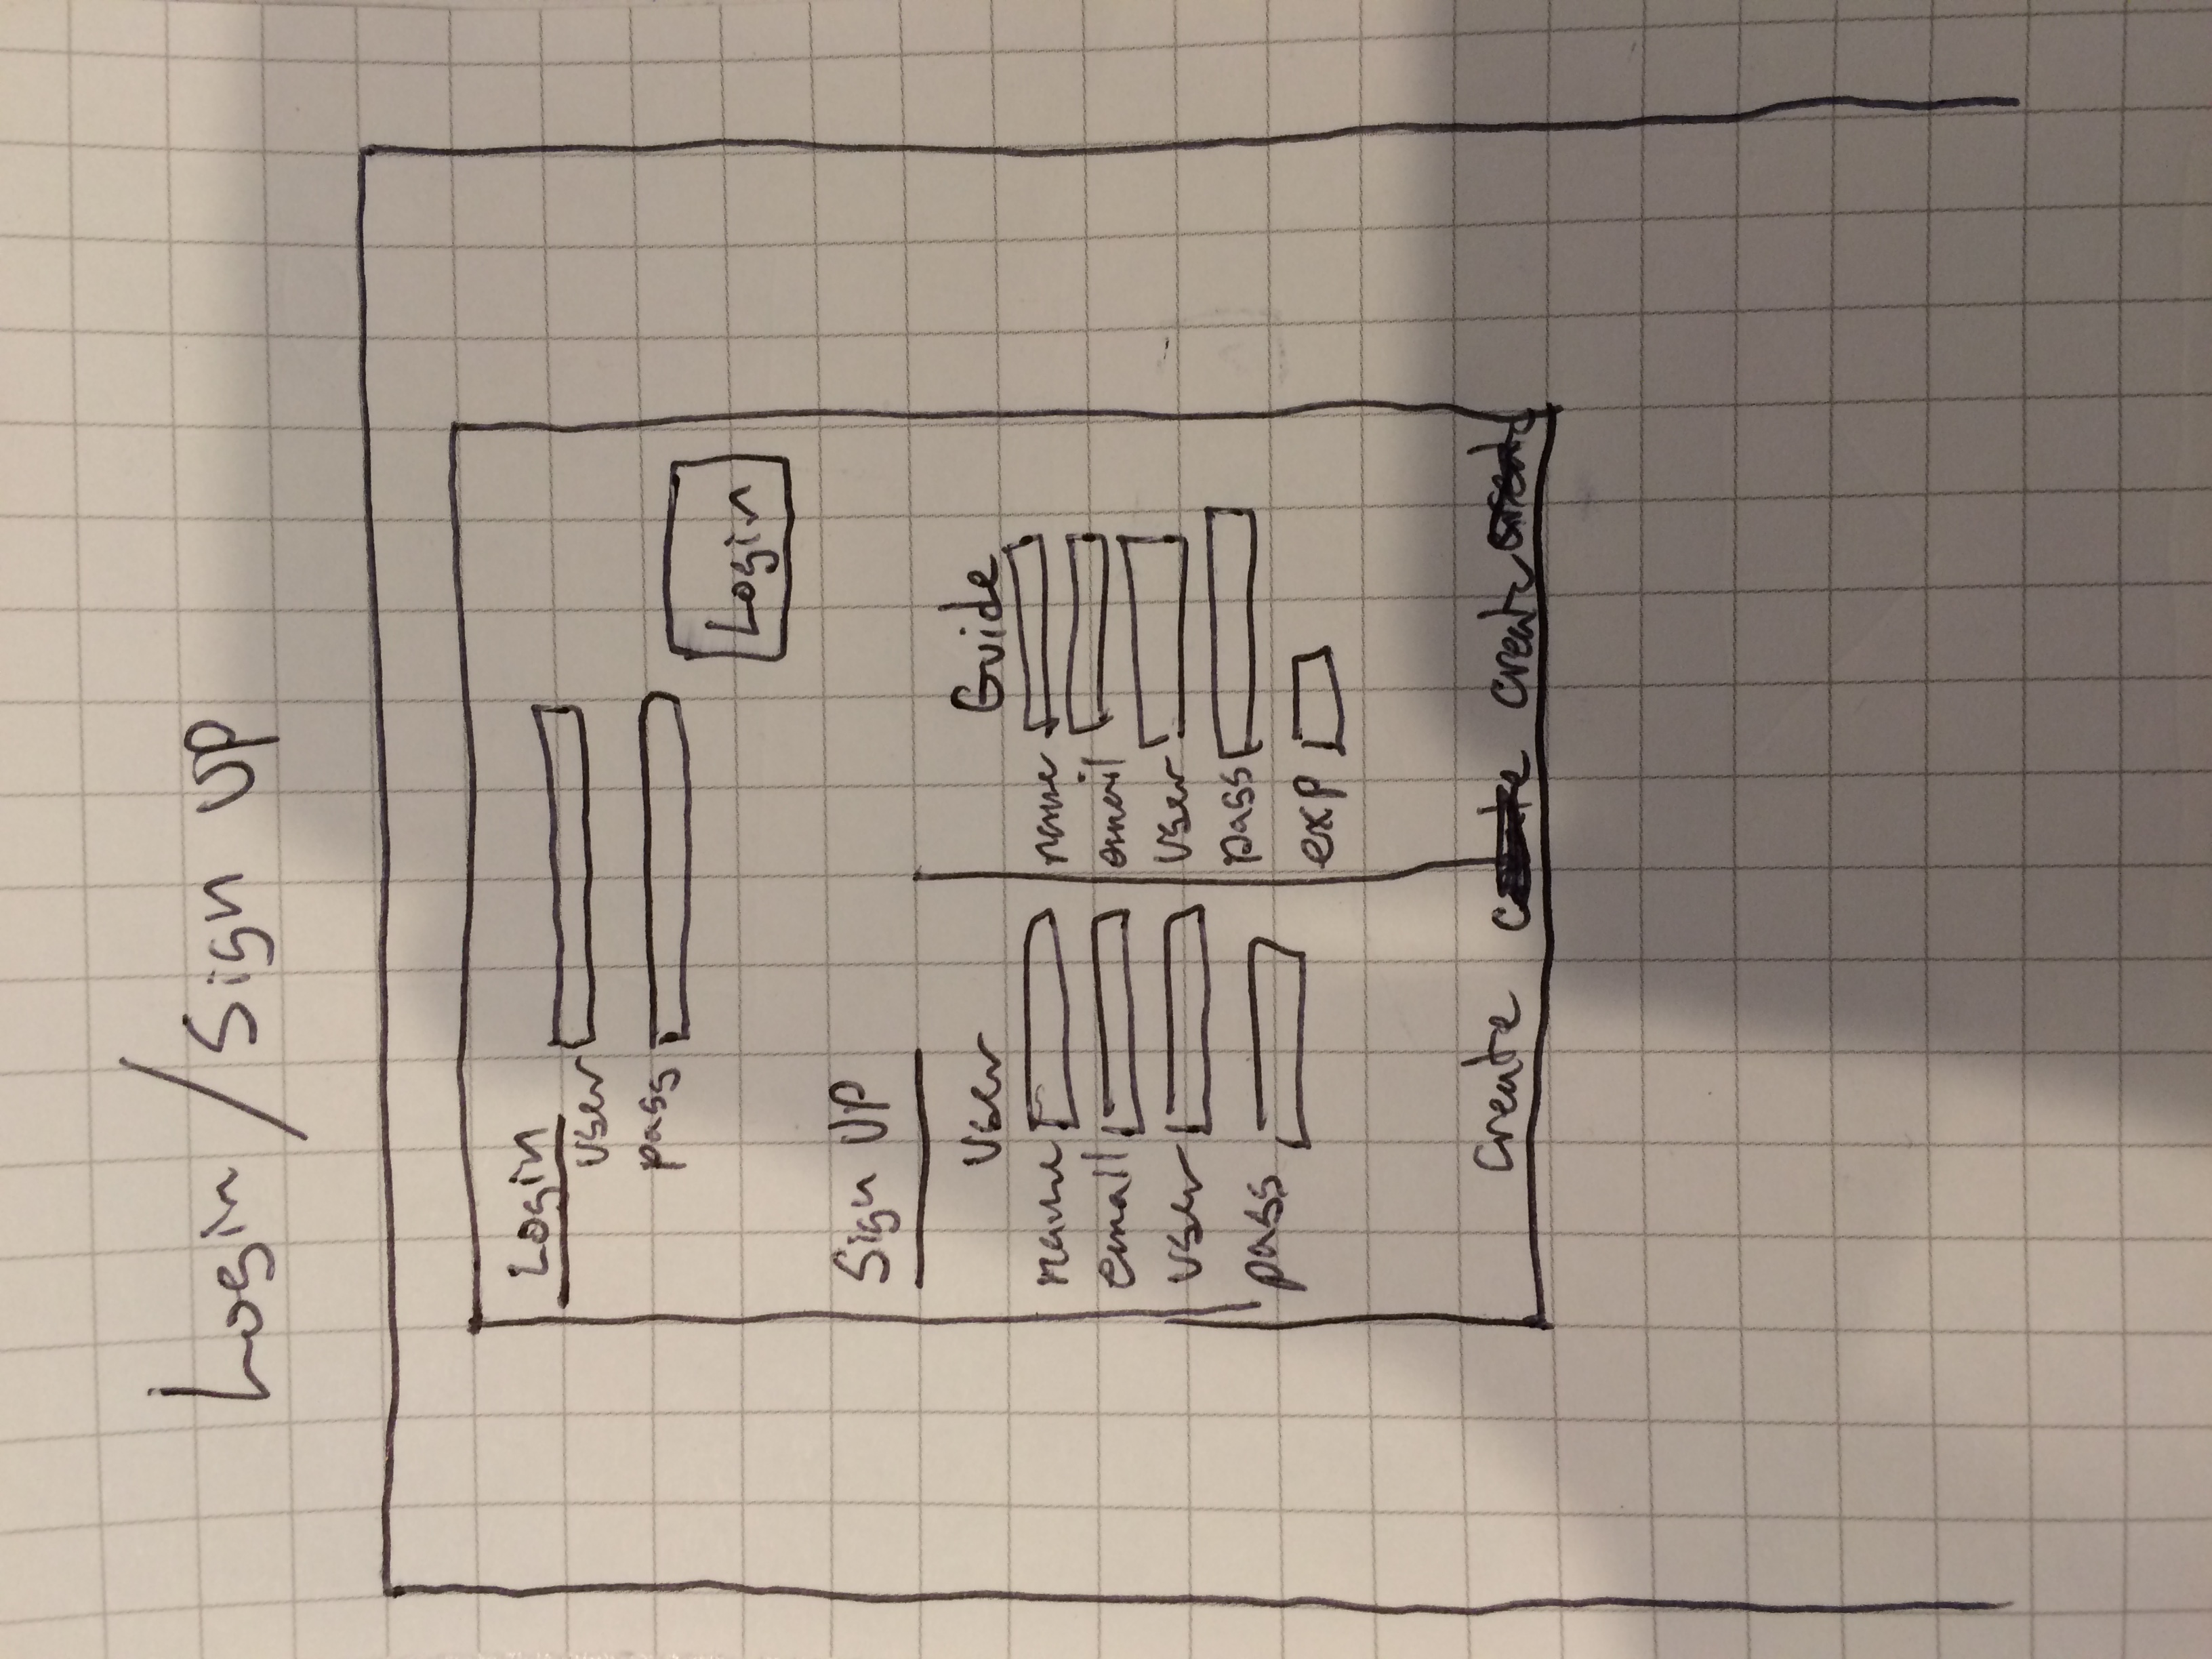 Login / Sign UP
Login
user
pass
Login
Sign UP
User
name
email
user
pass
Guide
name
email
user
pass
exp
create create